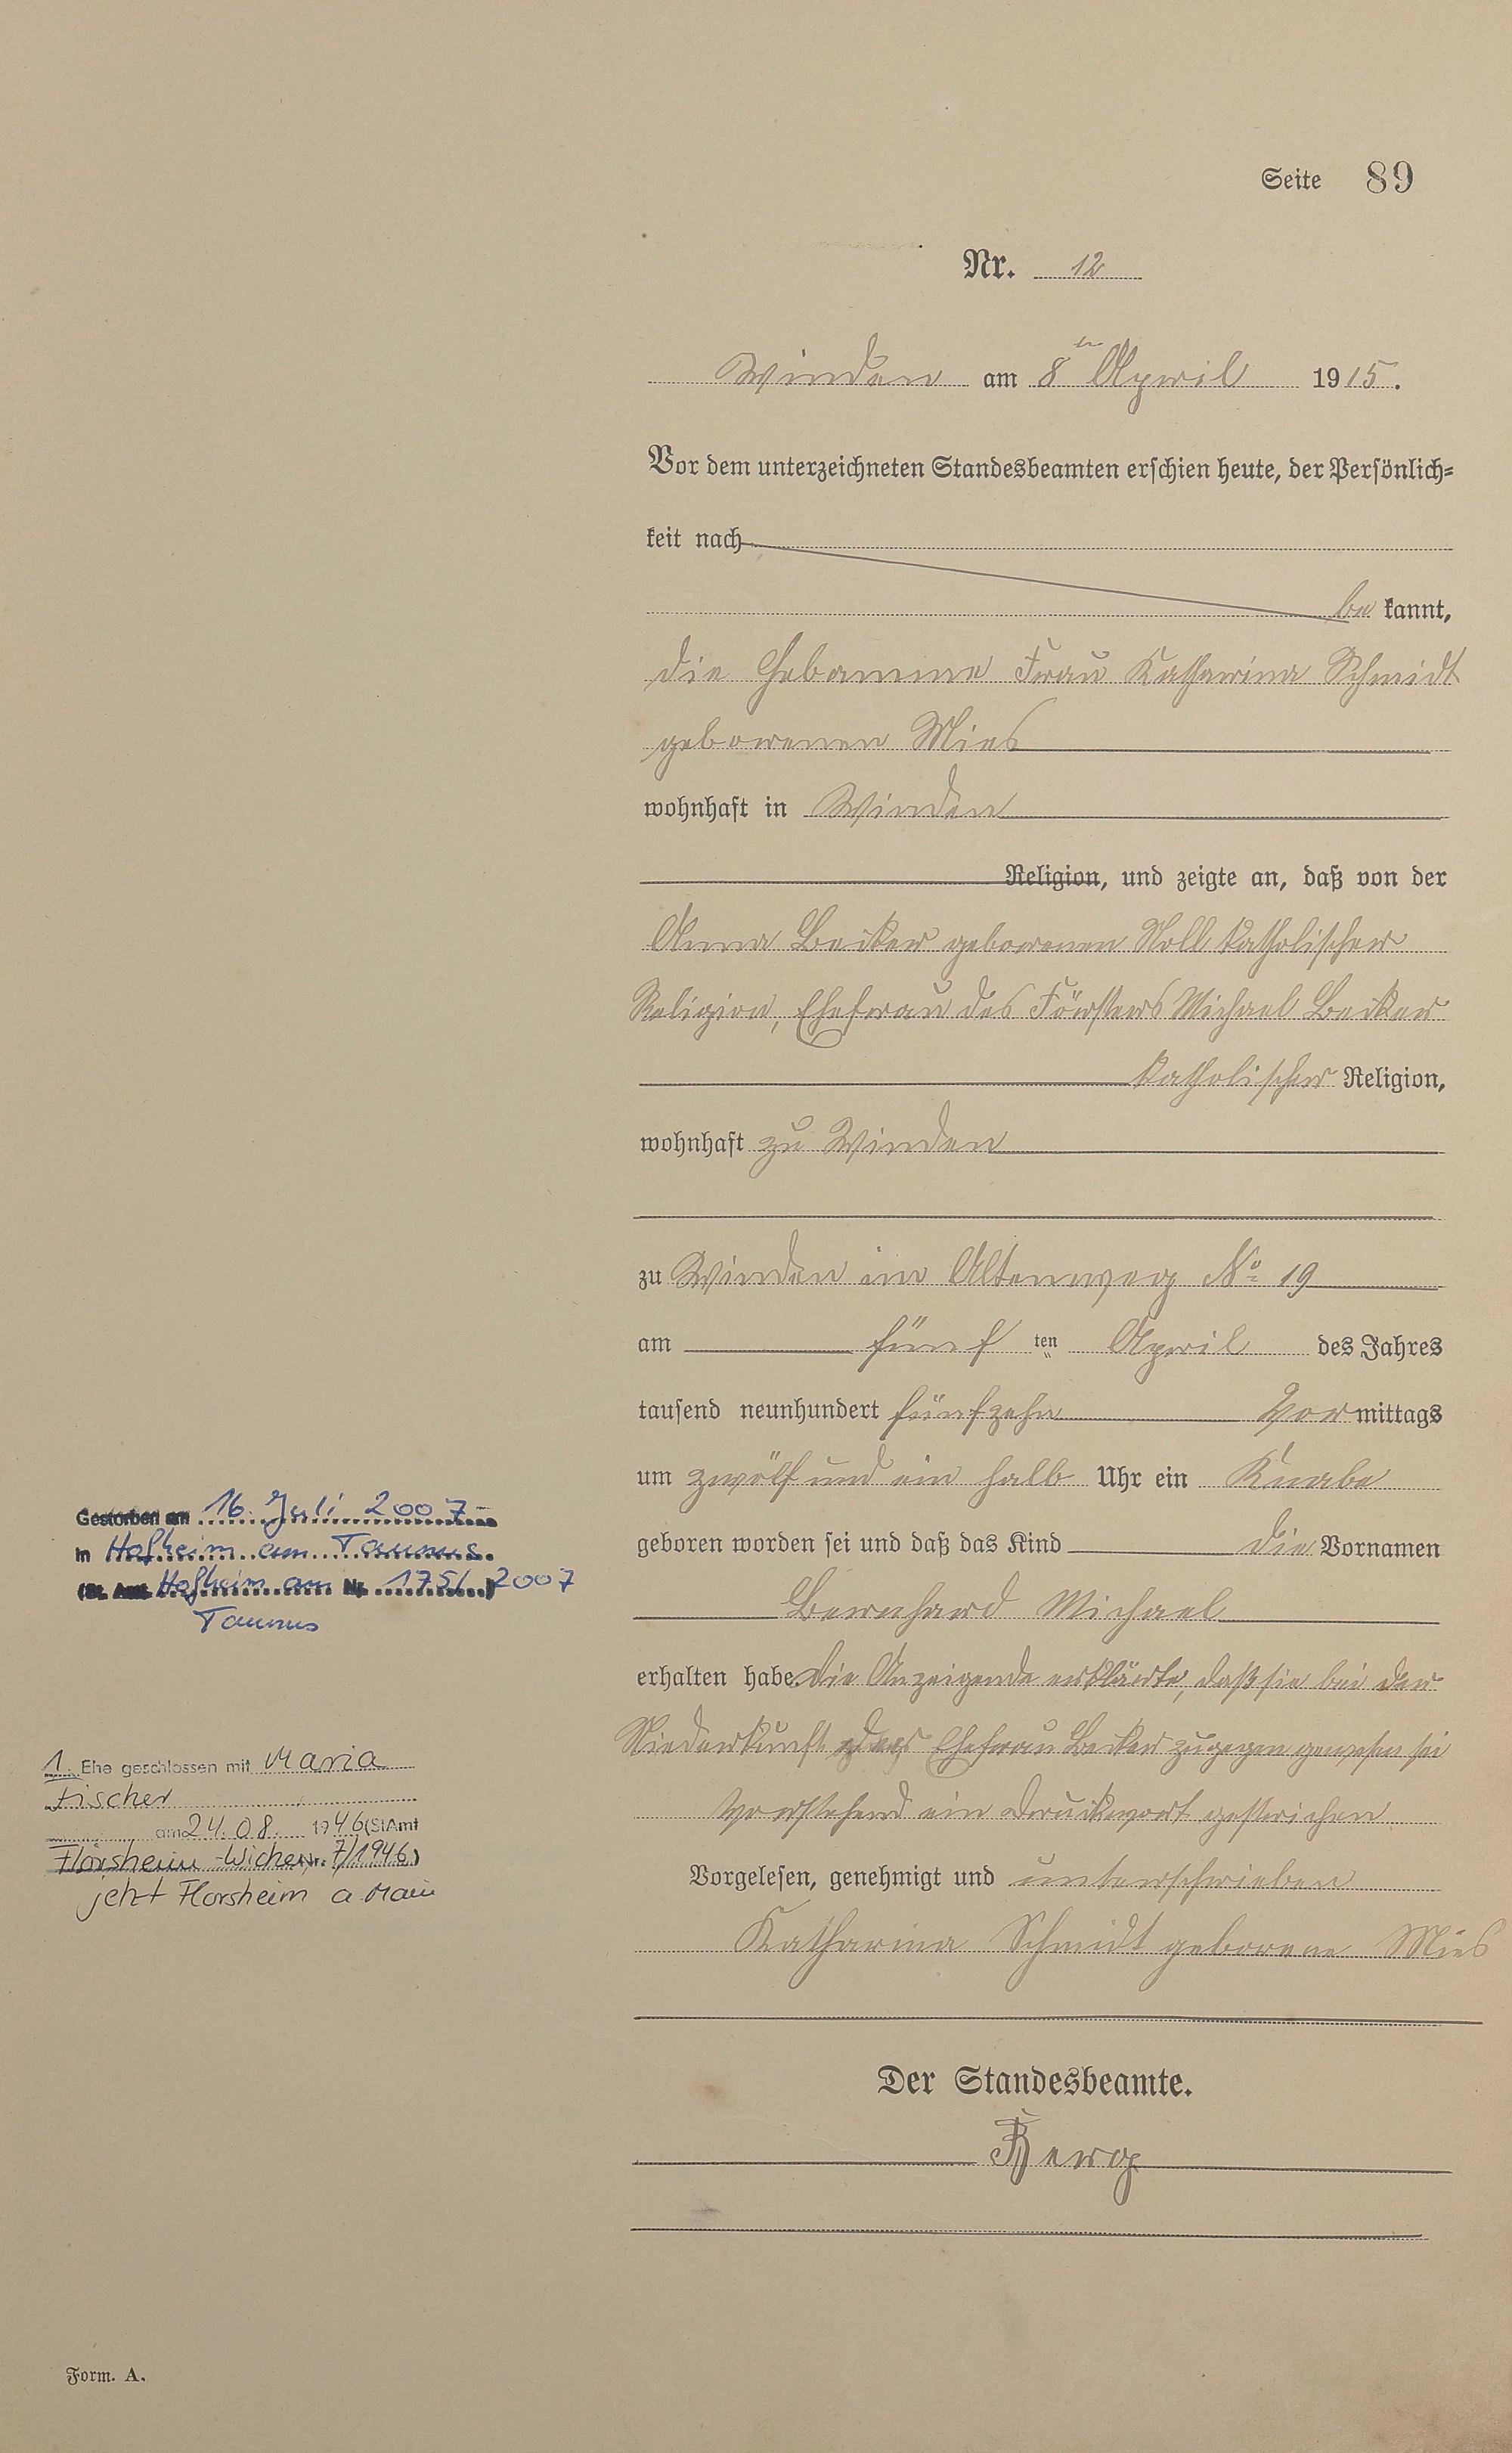 Seite 89
Nr. 12
Winden am 8ten April 1915.
Vor dem unterzeichneten Standesbeamten erschien heute, der Persönlich=
keit nach
be kannt,
die Hebamme Frau Katharina Schmidt
geborenen Mies
wohnhaft in Winden
Religion, und zeigte an, daß von der
Anna Becker geborenen Noll katholischer
Religion, Ehefrau des Försters Michael Becker
katholischer Religion,
wohnhaft zu Winden
zu Winden im Altenweg No 19
am fünf ten April des Jahres
tausend neunhundert fünfzehn Vor mittags
um zwölf und ein halb Uhr ein Knabe
geboren worden sei und daß das Kind die Vornamen
Bernhard Michael
erhalten habe. Die Anzeigende erklärte, daß sie bei der
Niederkunft der Ehefrau Becker zugegen gewesen sei
Vorstehend ein Druckwort gestrichen
Vorgelesen, genehmigt und unterschrieben
Katharina Schmidt geborene Mies
Der Standesbeamte.
Berg
Gestorben am 16. Juli 2007
in Hofheim am Taunus
(St. Amt Hofheim am Nr. 175/2007)
Taunus
1. Ehe geschlossen mit Maria
Fischer
am 24.08. 1946 (StAmt
Flörsheim-Wicker Nr. 7/1946)
jetzt Flörsheim a Main
Form. A.